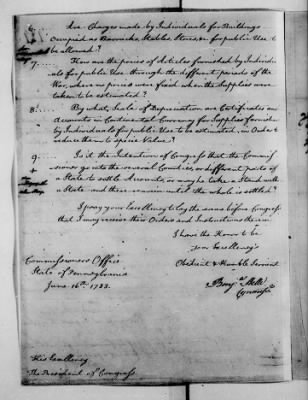 6. Are Charges made by Individuals for Buildings
Occupied as Barracks, Stables, Stores, &c for public Use to
be allowed?
7. How are the prices of Articles furnished by Individ-
uals for public Use through the different periods of the
War, where no prices were fixed when the Supplies were
taken to be estimated?
8. By what Scale of Depreciation are Certificates and
Accounts in Continental Currency for Supplies furnish'd
by Individuals for public Use to be estimated, in Order to
reduce them to specie Value?
9. Is it the Intention of Congress that the Commis-
sioners go into the several Counties, or different parts of
a State to settle Accounts, or may he take a Stand within
a State and there remain until the whole is settled?
I pray your Excellency to lay the same before Congress
that I may receive their Orders and Instructions therein
I have the Honor to be
Your Excellency's
Obedient & Humble Servant
Commissioners Office
State of Pennsylvania
June 16th. 1783.
His Excellency
The President of Congress